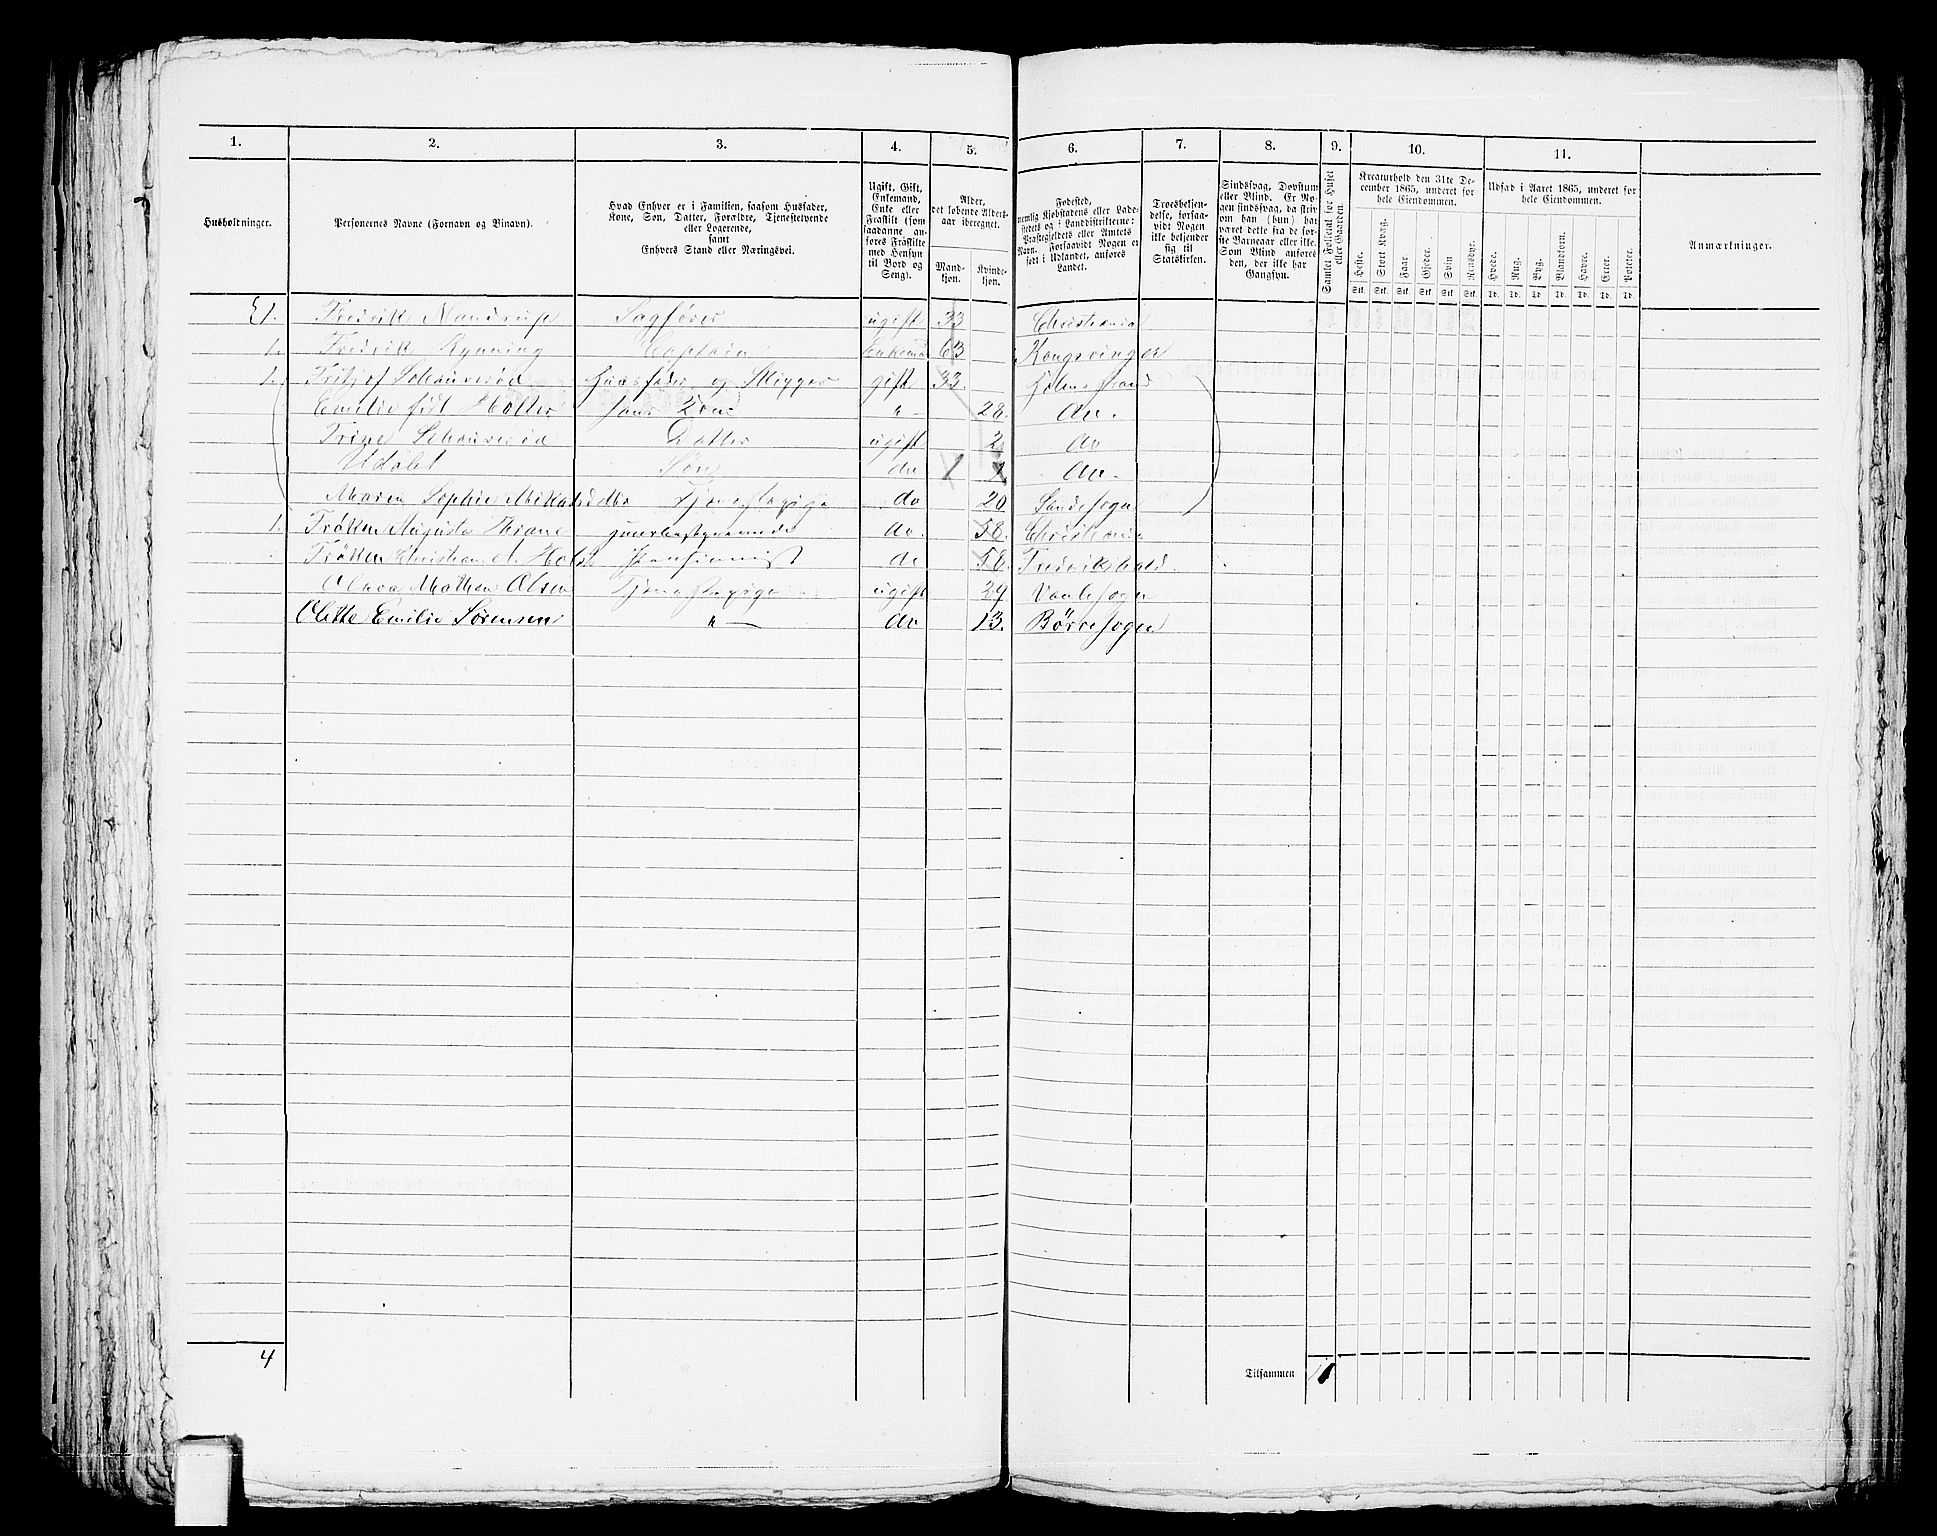 1. 2. 3. 4. 5. 6. 7. 8. 9. 10. 11.
Husholdninger.
Personernes Navne (Fornavn og Binavn).
Hvad Enhver er i Familien, saasom Husfader,
Kone, Søn, Datter, Forældre, Tjenestetyende
eller Logerende,
samt
Enhvers Stand eller Næringsvei.
Ugift, Gift,
Enkemand,
Enke eller
Fraskilt (som
saadanne an-
føres Fraskilte
med Hensyn
til Bord og
Seng).
Alder,
det løbende Alders-
aar iberegnet.
Mand-
kjøn.
Kvinde-
kjøn.
Fødested,
nemlig Kjøbstadens eller Lade-
stedets og i Landdistrikterne:
Præstegjeldets eller Amtets
Navn. Forsaavidt Nogen er
født i Udlandet, anføres
Landet.
Troesbekjen-
delse, forsaa-
vidt Nogen
ikke bekjender
sig til
Statskirken.
Sindssvag, Døvstum
eller Blind. Er No-
gen sindssvag, da skriv
om han (hun) har
været dette fra de før-
ste Barneaar eller ikke.
Som Blind anføres
den, der ikke har
Gangsyn.
Samlet Folketal for Huset
eller Gaarden.
Kreaturhold den 31te De-
cember 1865, underet for
hele Eiendommen.
Heste. Stort Kvæg. Faar. Gjeder. Svin Rensdyr.
Stk. Stk. Stk. Stk. Stk. Stk.
Udsæd i Aaret 1865, underet for
hele Eiendommen.
Hvede. Rug. Byg. Blandkorn. Havre. Erter. Poteter.
Td. Td. Td. Td. Td. Td. Td.
Anmærkninger.
1. Fredrik Nandrup Sagfører ugift 33 Christiania
1. Fredrik Rynning Captain Enkemd 63 Kongsvinger
1. Fritjof Schauverød Huusfader og Skipper gift 33 Holmestrand
Emilie født Holter hans Kone " 28. do.
Trine Schauverød Datter ugift 2 do
Søn do 1 do.
Maren Sophie Tjenestepige do 20 Sandesogn
1. Frøken Augusta Thrane do. 58. Christiania
Frøken Christian A. Holst Pensionist do 58. Fredrikshald.
Olava Mathea Olsen Tjenestepige ugift 29 Vaalesogn
Olette Emilie Sørensen " do 13. Børresogn
4
Tilsammen 11